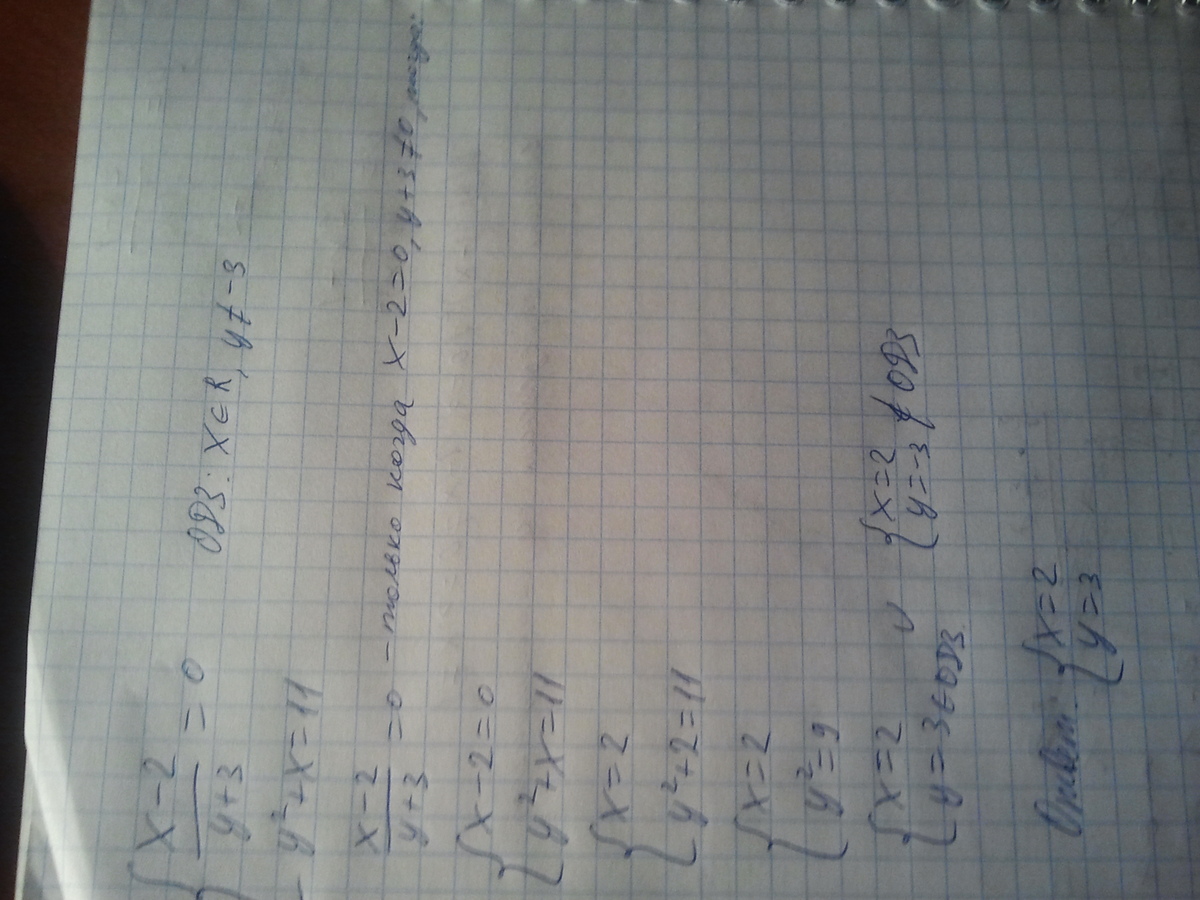 { x-2/y+3 = 0 ОДЗ: x∈R, y≠-3
y²+x=11
x-2/y+3 =0 - только когда x-2=0, y+3≠0, тогда:
{ x-2=0
y²+x=11
{ x=2
y²+2=11
{ x=2
y²=9
{ x=2 ∪ { x=2
y=3∈ОДЗ y=-3∉ОДЗ
Ответ: { x=2
y=3